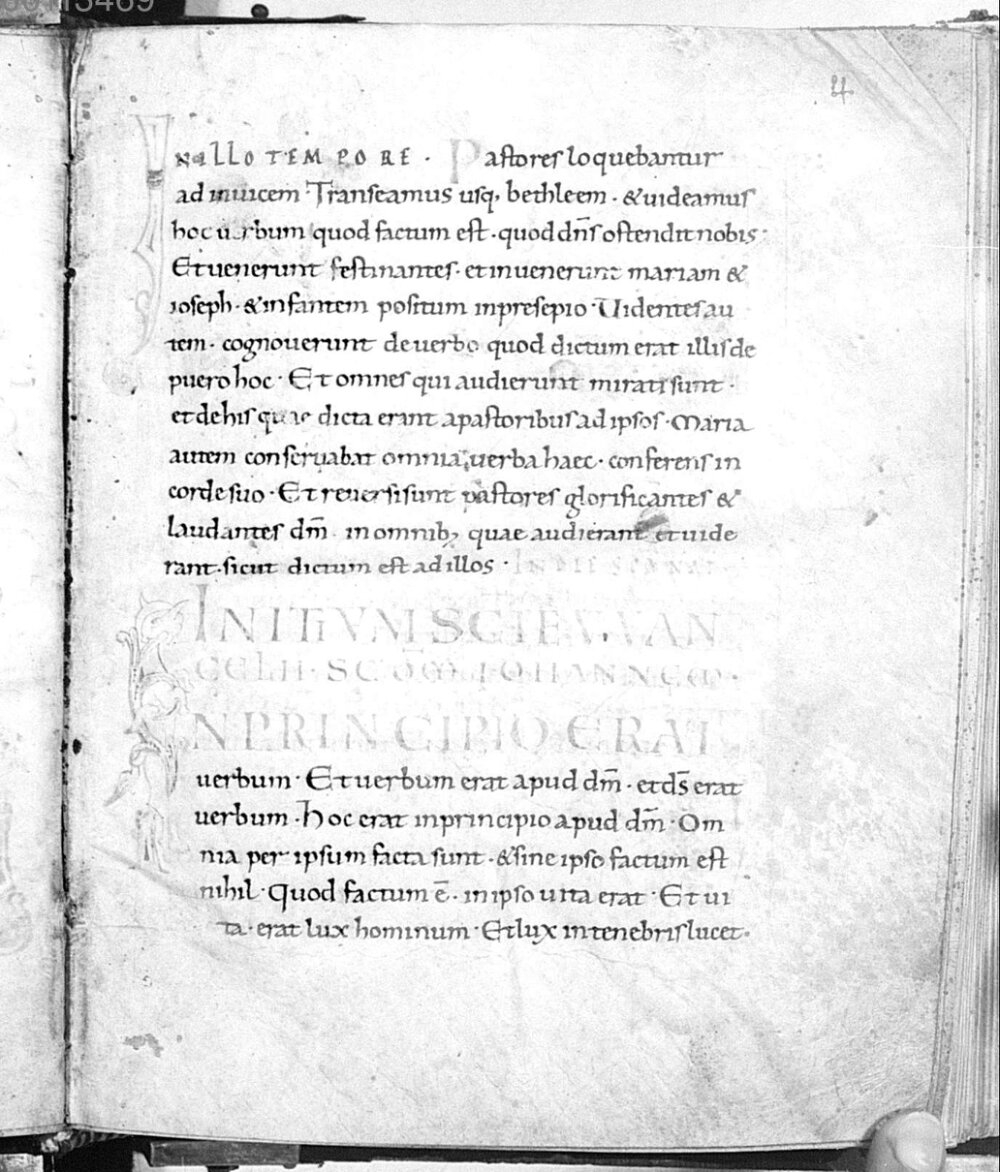 4
IN ILLO TEMPORE · Pastores loquebantur
ad inuicem Transeamus usq; bethleem · &uideamus
hoc uerbum quod factum est · quod dn̄s ostendit nobis ·
Et uenerunt festinantes · et inuenerunt mariam &
ioseph · &infantem positum in presepio · Uidentes au
tem · cognouerunt de uerbo quod dictum erat illis de
puero hoc · Et omnes qui audierunt mirati sunt ·
et de his quae dicta erant a pastoribus ad ipsos · Maria
autem conseruabat omnia uerba haec · conferens in
corde suo · Et reuersi sunt pastores glorificantes &
laudantes dm̄ in omnib; quae audierant et uide
rant · sicut dictum est ad illos · IN DIE
INITIUM SCI EUUAN
GELII · SCDM IOHANNEM ·
IN PRINCIPIO ERAT
uerbum · Et uerbum erat apud dm̄ · et ds̄ erat
uerbum · hoc erat in principio apud dm̄ · Om
nia per ipsum facta sunt · &sine ipso factum est
nihil · Quod factum ē · in ipso uita erat · Et ui
ta · erat lux hominum · Et lux in tenebris lucet ·